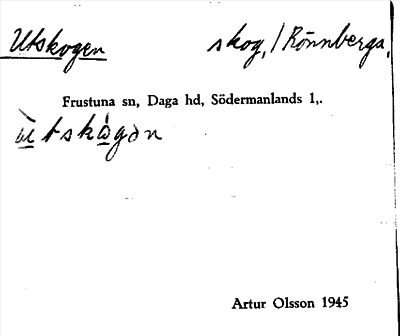 Utskogen skog, / Rönnberga,
Frustuna sn, Daga hd, Södermanlands l,.
ùtskågən
Artur Olsson 1945